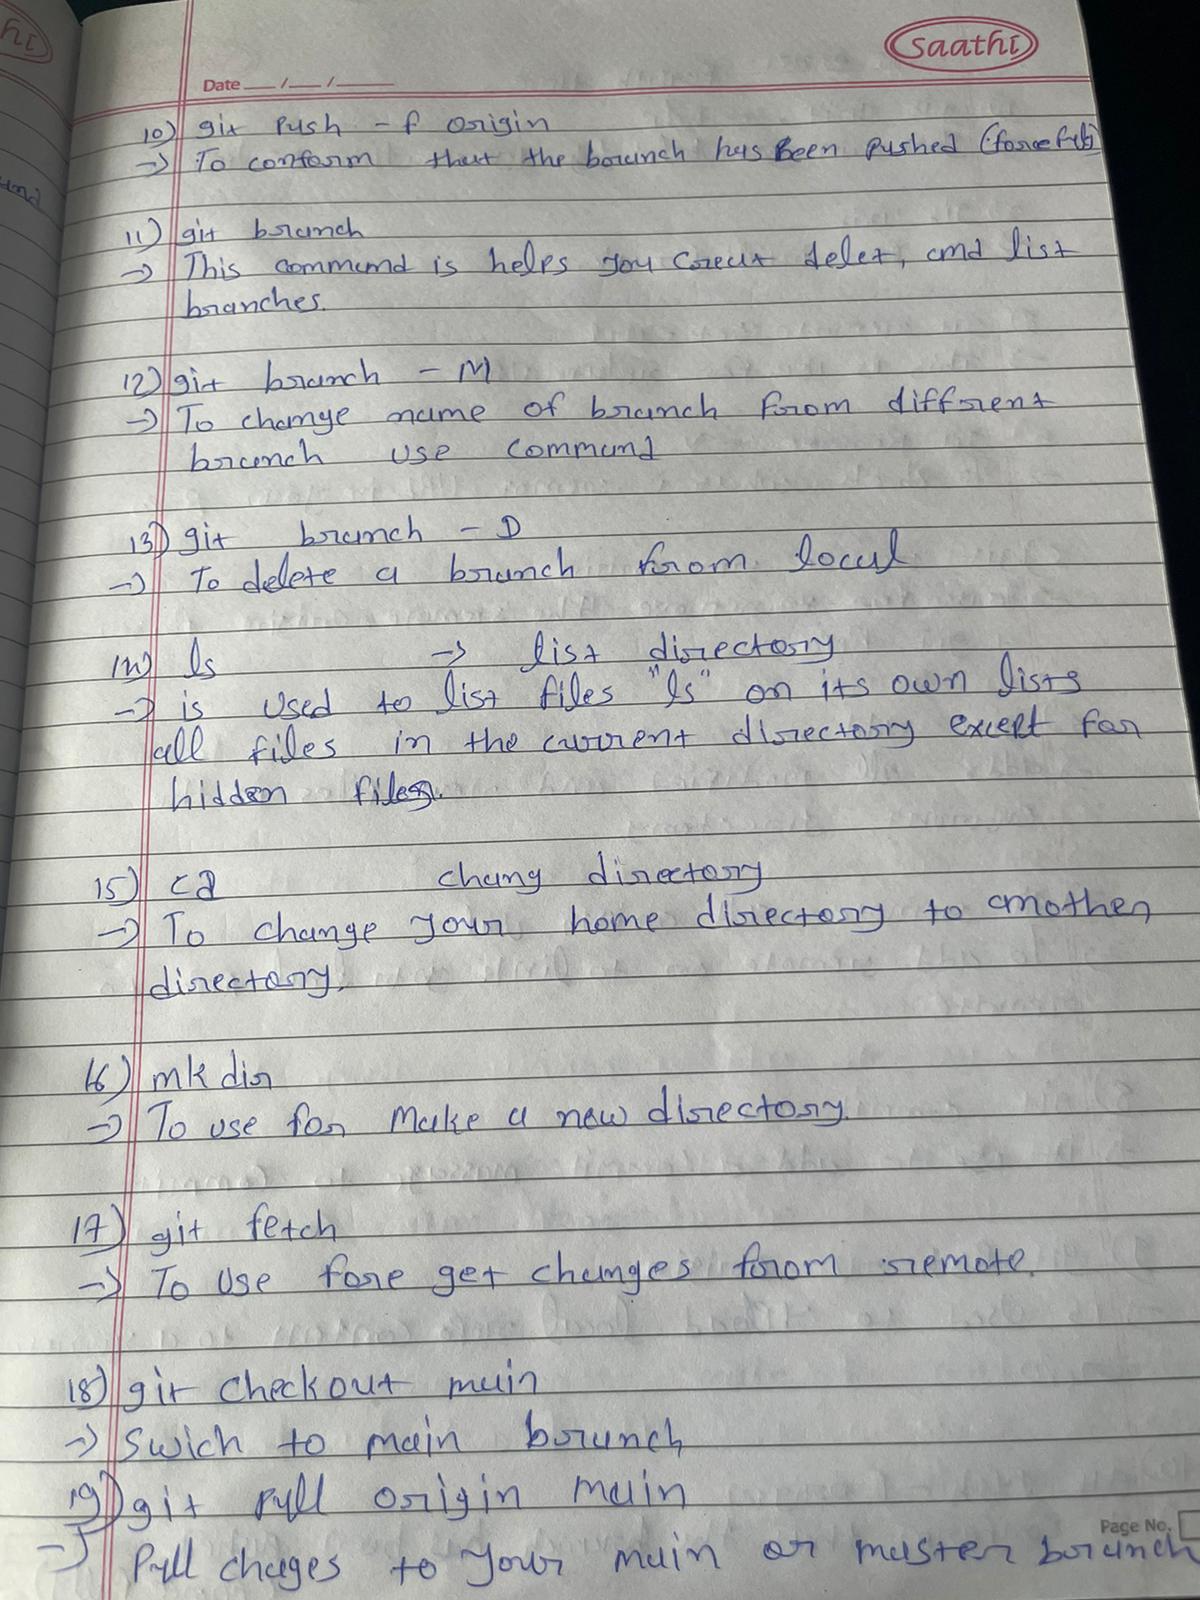 saathi
Date __/__/____
10) git push -f origin
→ To conform that the branch has Been pushed
11) git branch
→ This command is helps you Creat delet, and list
branches.
12) git branch -M
→ To change name of branch from diffrent
branch use command
13) git branch -D
→ To delete a branch from local
14) ls → list directory
→ is used to list files "ls" on its own lists
all files in the current directory except for
hidden files.
15) cd chang directory
→ To change your home directory to another
directory.
16) mkdir
→ To use for Make a new directory.
17) git fetch
→ To use fore get changes from remote.
18) git checkout main
→ Swich to main branch
19) git pull origin main
→ Pull chages to your main or master branch
Page No.